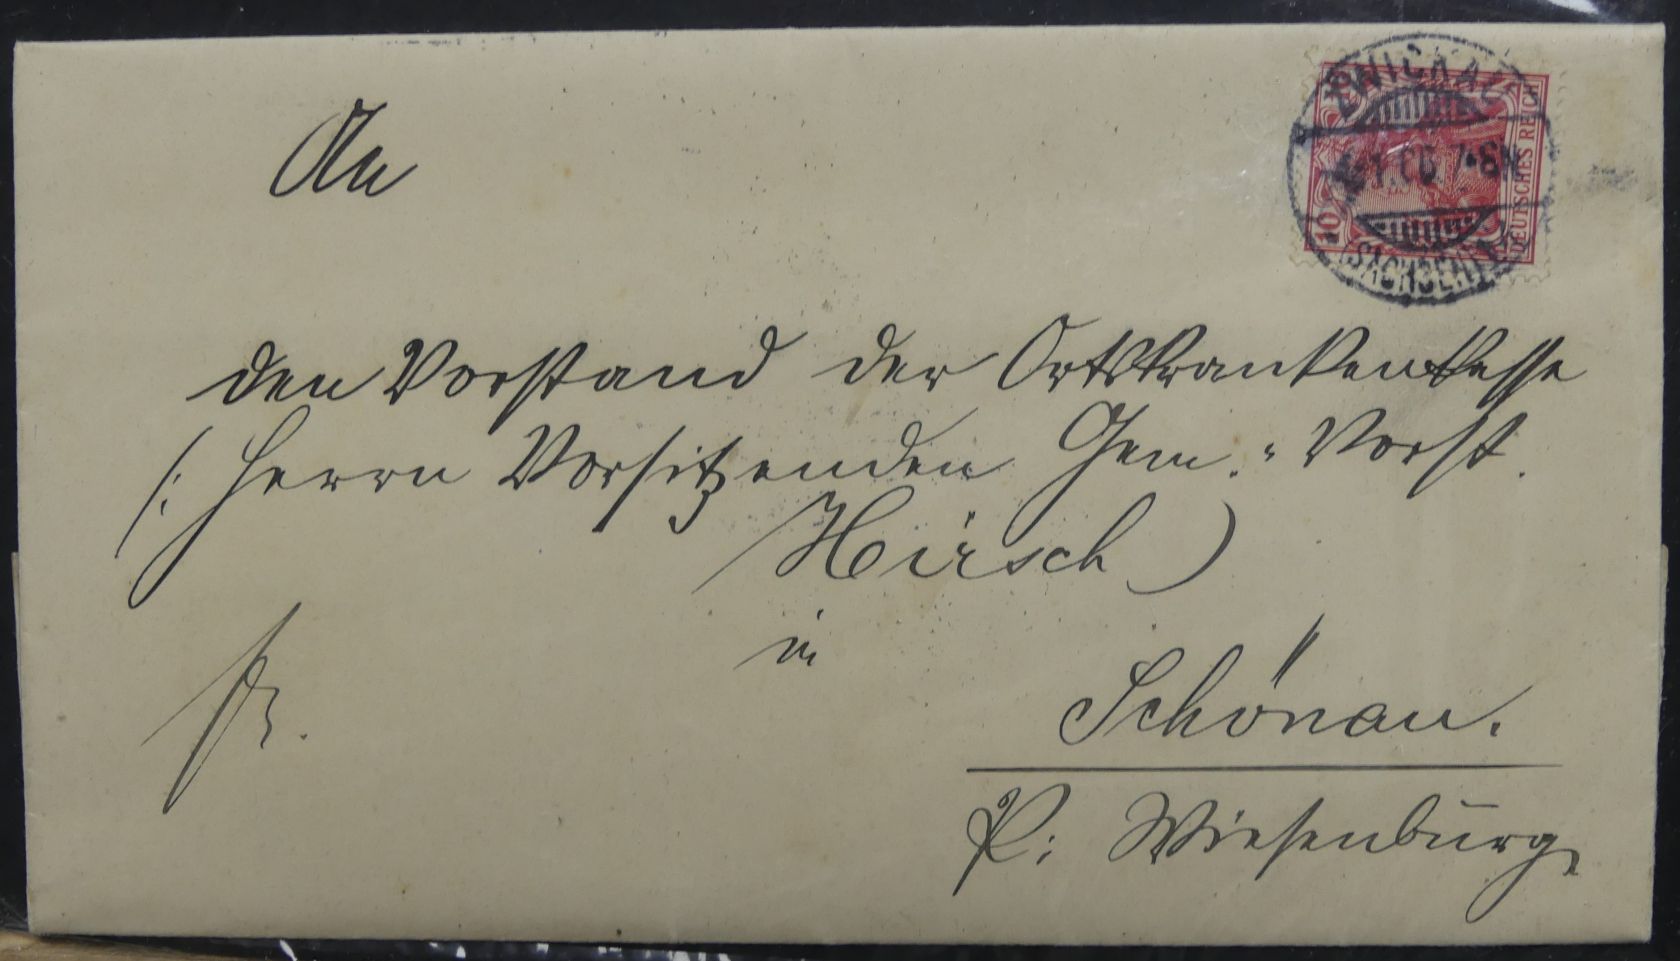 An
ZWICKAU
7-8N
(SACHSEN)
10
DEUTSCHES REICH
den Vorstand der Ortskrankenkasse
(: Herrn Vorsitzenden Gem.-Vorst.
Hirsch)
in
Fr.
Schönau.
P: Wiesenburg